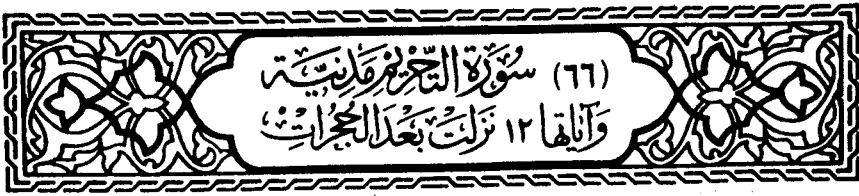 (٦٦) سُورَة التَّحْرِيمِ مَدَنِيَّة
وَآيَاتهَا ١٢ نَزلَتْ بَعْدَ الحُجُرَاتِ